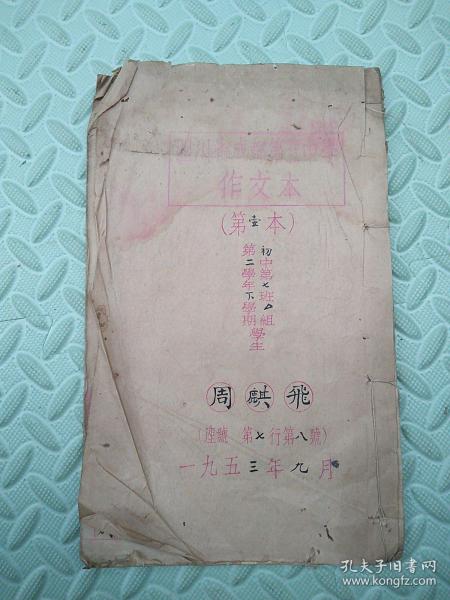 作文本
(第壹本)
初中第七班 組
第二學年下學期
學生
周麒飛
(座號 第七行第八號)
一九五三年九月
孔夫子旧书网
www.kongfz.com